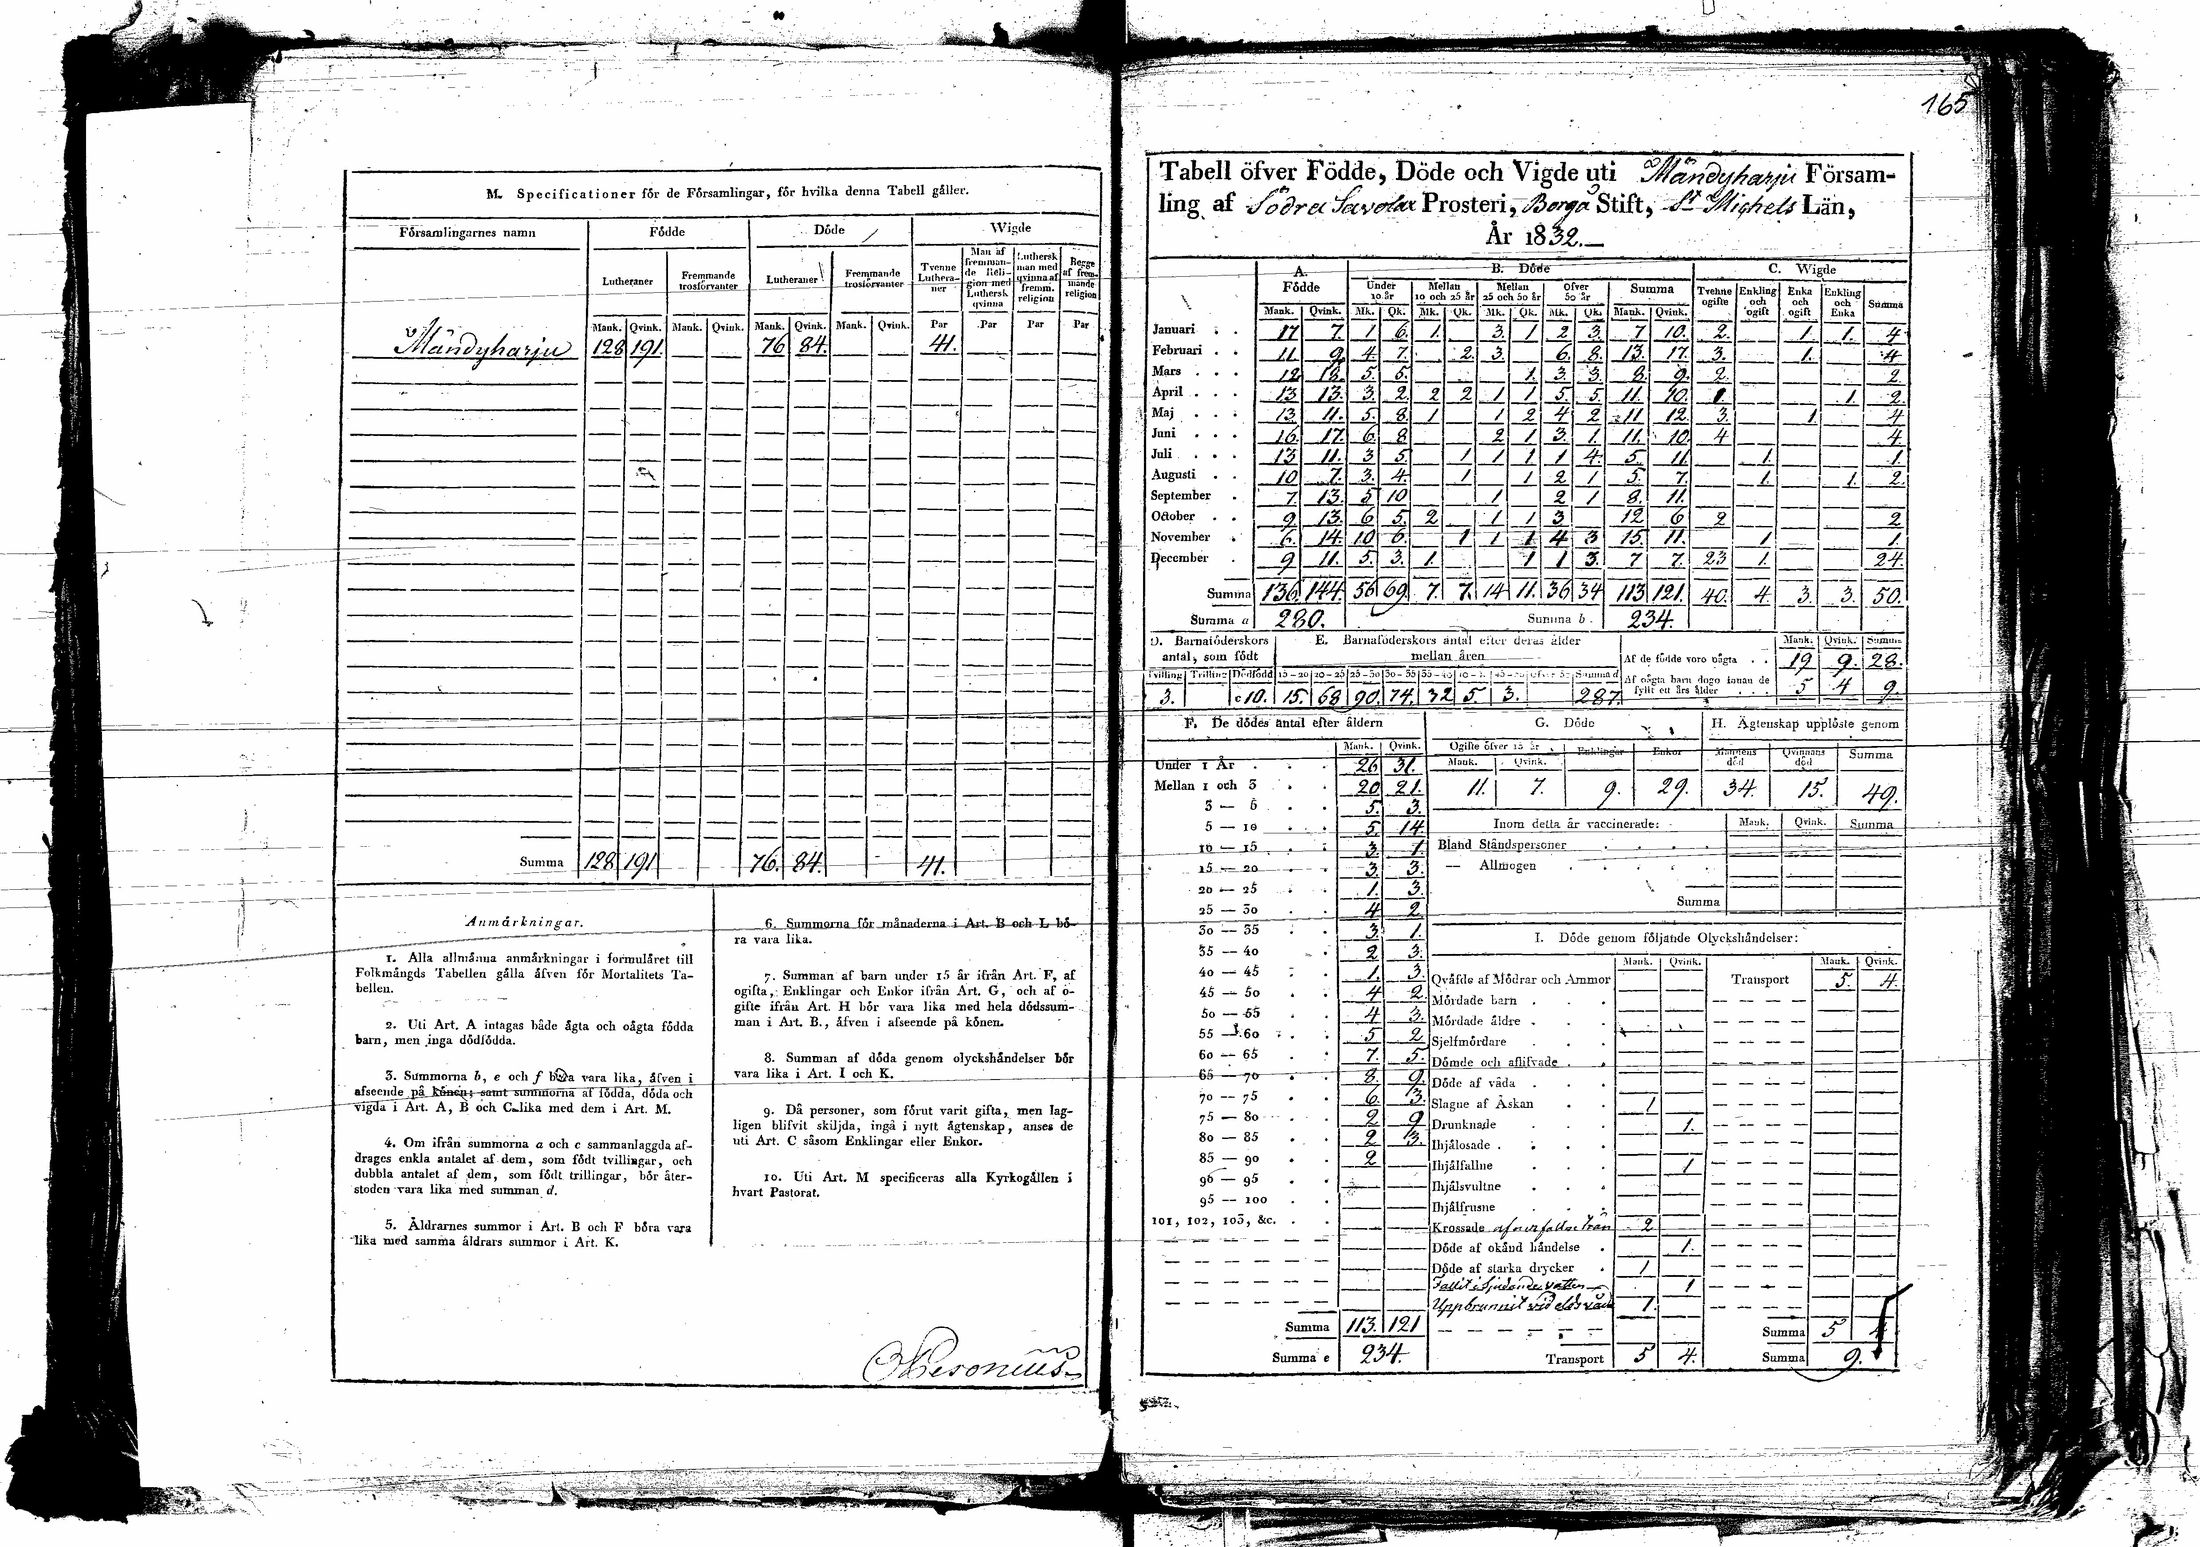 165
M. Specificationer för de Församlingar, för hvilka denna Tabell gäller.
Församlingarnes namn | Födde | Döde | Wigde
Lutheraner | Fremmande trosförvanter | Lutheraner | Fremmande trosförvanter | Tvenne Lutheraner | Man af fremmande Religion med Luthersk qvinna | Luthersk man med qvinna af fremm. religion | Begge af fremmande religion
Mank. | Qvink. | Mank. | Qvink. | Mank. | Qvink. | Mank. | Qvink. | Par | Par | Par | Par
Mändyharju 128 191. 76 84. 41.
Summa 128 191 76. 84. 41.
Anmärkningar.
1. Alla allmänna anmärkningar i formuläret till
Folkmängds Tabellen gälla äfven för Mortalitets Ta-
bellen.
2. Uti Art. A intagas både ägta och oägta födda
barn, men inga dödfödda.
3. Summorna b, e och f böra vara lika, äfven i
afseende på könen; samt summorna af födda, döda och
vigda i Art. A, B och C lika med dem i Art. M.
4. Om ifrån summorna a och c sammanlaggda af-
drages enkla antalet af dem, som födt tvillingar, och
dubbla antalet af dem, som födt trillingar, bör åter-
stoden vara lika med summan d.
5. Åldrarnes summor i Art. B och F böra vara
lika med samma åldrars summor i Art. K.
6. Summorna för månaderna i Art. B och L bö-
ra vara lika.
7. Summan af barn under 15 år ifrån Art. F, af
ogifta, Enklingar och Enkor ifrån Art. G, och af o-
gifte ifrån Art. H bör vara lika med hela dödssum-
man i Art. B., äfven i afseende på könen.
8. Summan af döda genom olyckshändelser bör
vara lika i Art. I och K.
9. Då personer, som förut varit gifta, men lag-
ligen blifvit skiljda, ingå i nytt ägtenskap, anses de
uti Art. C såsom Enklingar eller Enkor.
10. Uti Art. M specificeras alla Kyrkogällen i
hvart Pastorat.
Tabell öfver Födde, Döde och Vigde uti Mändyharju Försam-
ling af Södra Savolax Prosteri, Borgå Stift, St Michels Län,
År 1832.
A. Födde | B. Döde | C. Wigde
Under 10 år | Mellan 10 och 25 år | Mellan 25 och 50 år | Öfver 50 år | Summa | Tvenne ogifte | Enkling och ogift | Enka och ogift | Enkling och Enka | Summa
Mank. | Qvink. | Mk. | Qk. | Mk. | Qk. | Mk. | Qk. | Mk. | Qk. | Mank. | Qvink.
Januari 17 7. 1 6. 1. 3. 1 2 3. 7 10. 2. 1. 1. 4
Februari 11 9 4. 7. 2. 3. 6. 8. 13. 17. 3. 1. 4
Mars 12 18. 5 5. 1. 3. 3. 8. 9. 2. 2.
April 13 13. 3. 2. 2 2 1 1 5. 5. 11. 10. 1. 2.
Maj 13. 11. 5. 8. 1 1 2 4 2 11 12. 3. 1. 4
Juni 16. 17. 6. 8 2 1 3. 1. 11. 10. 4 4.
Juli 13 11. 3 5. 1 1 1 1 4. 5. 11. 1. 1.
Augusti 10 7. 3. 4. 1 1 2 1 5. 7. 1. 1. 2.
September 7. 13. 5 10 1 2 1 8. 11.
October 9 13. 6 5. 2 1 1 3 12 6 2 2
November 6. 14. 10 6. 1 1 1 4 3 15. 11. 1 1.
December 9 11. 5. 3. 1. 1 1 3. 7 7. 23 1. 24.
Summa 136. 144. 56 69. 7. 7. 14 11. 36 34 113 121. 40. 4. 3. 3. 50.
Summa a 280. Summa b 234.
D. Barnaföderskors antal, som födt | E. Barnaföderskors antal efter deras ålder mellan åren | Mank. | Qvink. | Summa
Af de födde voro oägta 19 9. 28.
Tvilling | Trilling | Dödfödd | 15—20 | 20—25 | 25—30 | 30—35 | 35—40 | Summa d
Af oägta barn dogo innan de fyllt ett års ålder 5 4 9.
3. c 10. 15. 68 90. 74. 32 5. 3. 287.
F. De dödes antal efter åldern | G. Döde | H. Ägtenskap upplöste genom
Mank. | Qvink. | Ogifte öfver 15 år | Enklingar | Enkor | Mannens död | Qvinnans död | Summa
Mank. | Qvink.
11. 7. 9. 29. 34. 15. 49.
Under 1 År 26 31.
Mellan 1 och 3 20 21.
3 — 5 5. 3.
5 — 10 5. 14.
10 — 15 3. 1.
15 — 20 3. 3.
20 — 25 1. 3.
25 — 30 4 2
30 — 35 3. 1.
35 — 40 2 3.
40 — 45 1. 3.
45 — 50 4 2.
50 — 55 4 3.
55 — 60 5 2
60 — 65 7. 5.
65 — 70 8. 9.
70 — 75 6. 13.
75 — 80 2 9
80 — 85 2 3.
85 — 90 2
90 — 95
95 — 100
101, 102, 103, &c.
Summa 113. 121
Summa e 234.
Inom detta år vaccinerade: Mank. Qvink. Summa
Bland Ståndspersoner
— Allmogen
Summa
I. Döde genom följande Olyckshändelser:
Mank. | Qvink. | Mank. | Qvink.
Qväfde af Mödrar och Ammor Transport 5. 4.
Mördade barn
Mördade äldre
Sjelfmördare
Dömde och aflifvade
Döde af våda
Slagne af Åskan 1
Drunknade 1.
Ihjälosade
Ihjälfallne 1
Ihjälsvultne
Ihjälfrusne
Krossade 2
Döde af okänd händelse 1.
Döde af starka drycker 1
Fallit i sjudande vatten 1
Uppbrunnit vid eldsvåda 1.
Summa 5 4
Transport 5 4. Summa 9.